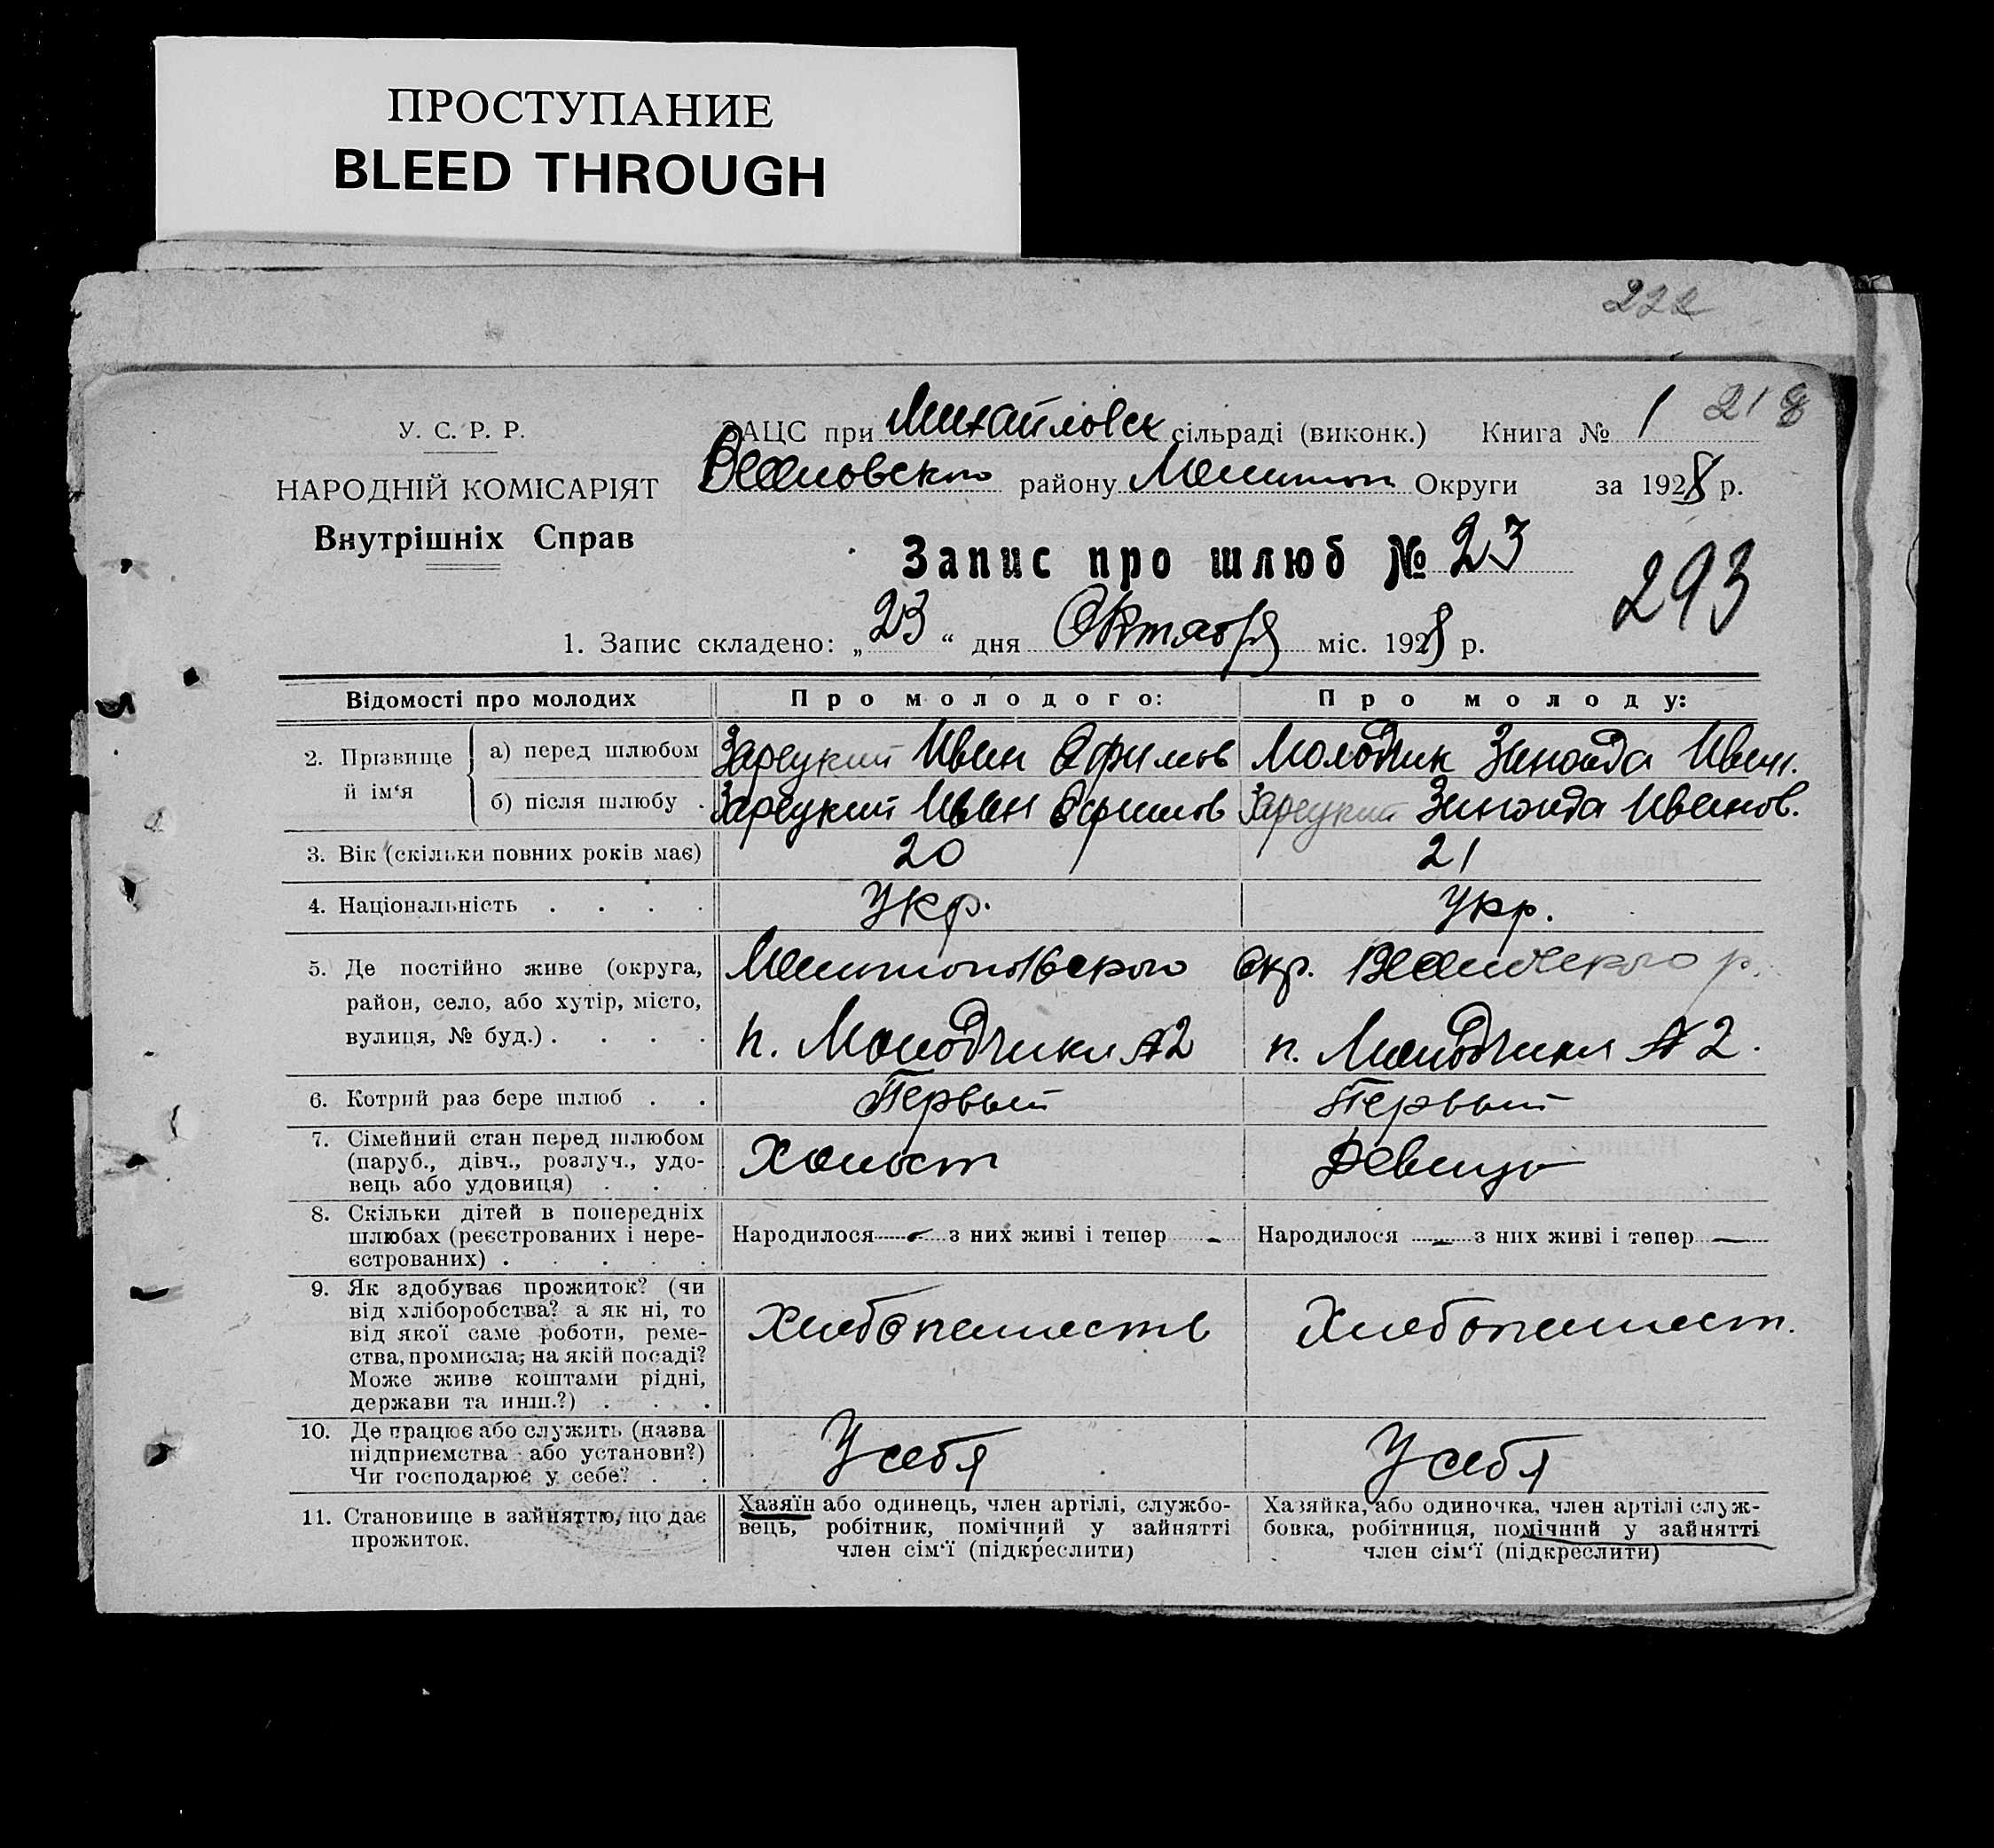 ПРОСТУПАНИЕ
BLEED THROUGH
222
218
У. С. Р. Р.
НАРОДНІЙ КОМІСАРІЯТ
Внутрішніх Справ
ЗАЦС при Михайловск сільраді (виконк.) Книга № 1
району Мелитоп Округи за 1928 р.
Запис про шлюб № 23
293
1. Запис складено: „23“ дня Октября міс. 1928 р.
Відомості про молодих Про молодого: Про молоду:
2. Прізвище й ім‘я
а) перед шлюбом Зарецкий Иван Ефимов Молодчик Зинаида Иван.
б) після шлюбу . Зарецкий Иван Ефимов Зарецкий Зинаида Иванов.
3. Вік (скільки повних років має) 20 21
4. Національність . . . . Укр. Укр.
5. Де постійно живе (округа, район, село, або хутір, місто, вулиця, № буд.) . . . .
Мелитопольского Окр. р.
п. Молодчики №2 п. Молодчики №2.
6. Котрий раз бере шлюб . . Первый Первый
7. Сімейний стан перед шлюбом
(паруб., дівч., розлуч., удо-
вець або удовиця) . . . Холост Девица
8. Скільки дітей в попередніх
шлюбах (реєстрованих і нере-
єстрованих) . . . . .
Народилося — з них живі і тепер - Народилося — з них живі і тепер —
9. Як здобуває прожиток? (чи
від хліборобства? а як ні, то
від якої саме роботи, реме-
ства, промисла; на якій посаді?
Може живе коштами рідні,
держави та инш.?) . . .
Хлебопашеств Хлебопашест.
10. Де працює або служить (назва
підприємства або установи?)
Чи господарює у себе? . .
У себя У себя
11. Становище в зайняттю, що дає
прожиток.
Хазяїн або одинець, член артілі, службо-
вець, робітник, помічний у зайнятті
член сім‘ї (підкреслити)
Хазяйка, або одиночка, член артілі служ-
бовка, робітниця, помічний у зайнятті
член сім‘ї (підкреслити)